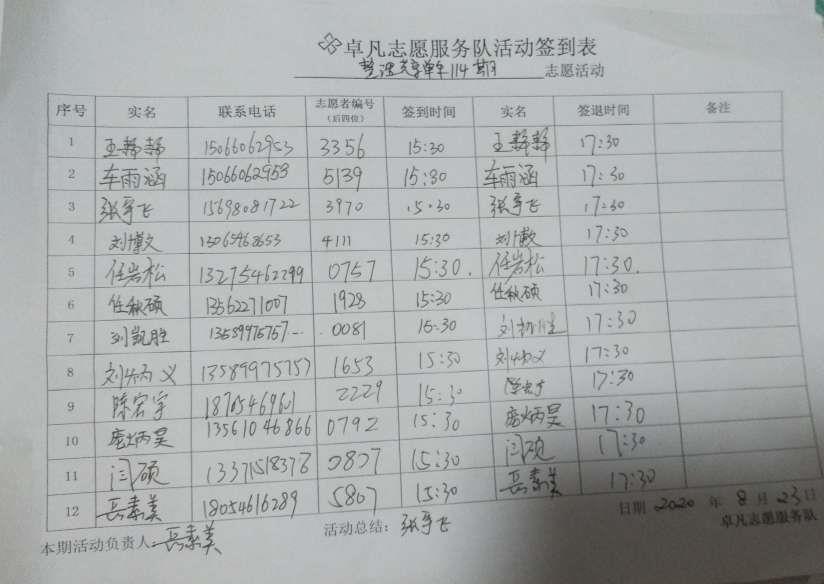 卓凡志愿服务队活动签到表
整理共享单车114期 志愿活动
序号 实名 联系电话 志愿者编号（后四位） 签到时间 实名 签退时间 备注
1 王静静 15066062953 3356 15:30 王静静 17:30
2 车雨涵 15066062953 5139 15:30 车雨涵 17:30
3 张宇飞 15698081722 3970 15:30 张宇飞 17:30
4 刘博文 4111 15:30 17:30
5 任岩松 13275462299 0757 15:30. 任岩松 17:30.
6 任秋硕 13562271007 1928 15:30 任秋硕 17:30
7 刘凯胜 13589975757 0081 15:30 17:30
8 刘炳义 13589975757 1653 15:30 刘炳义 17:30
9 陈宏宇 2229 15:30 17:30
10 庞炳昊 13561046866 0792 15:30 庞炳昊 17:30
11 闫硕 13371518378 0807 15:30 闫硕 17:30
12 岳素美 18054616289 5807 15:30 岳素美 17:30
日期 2020 年 8 月 23 日
本期活动负责人 岳素美 活动总结：张宇飞 卓凡志愿服务队